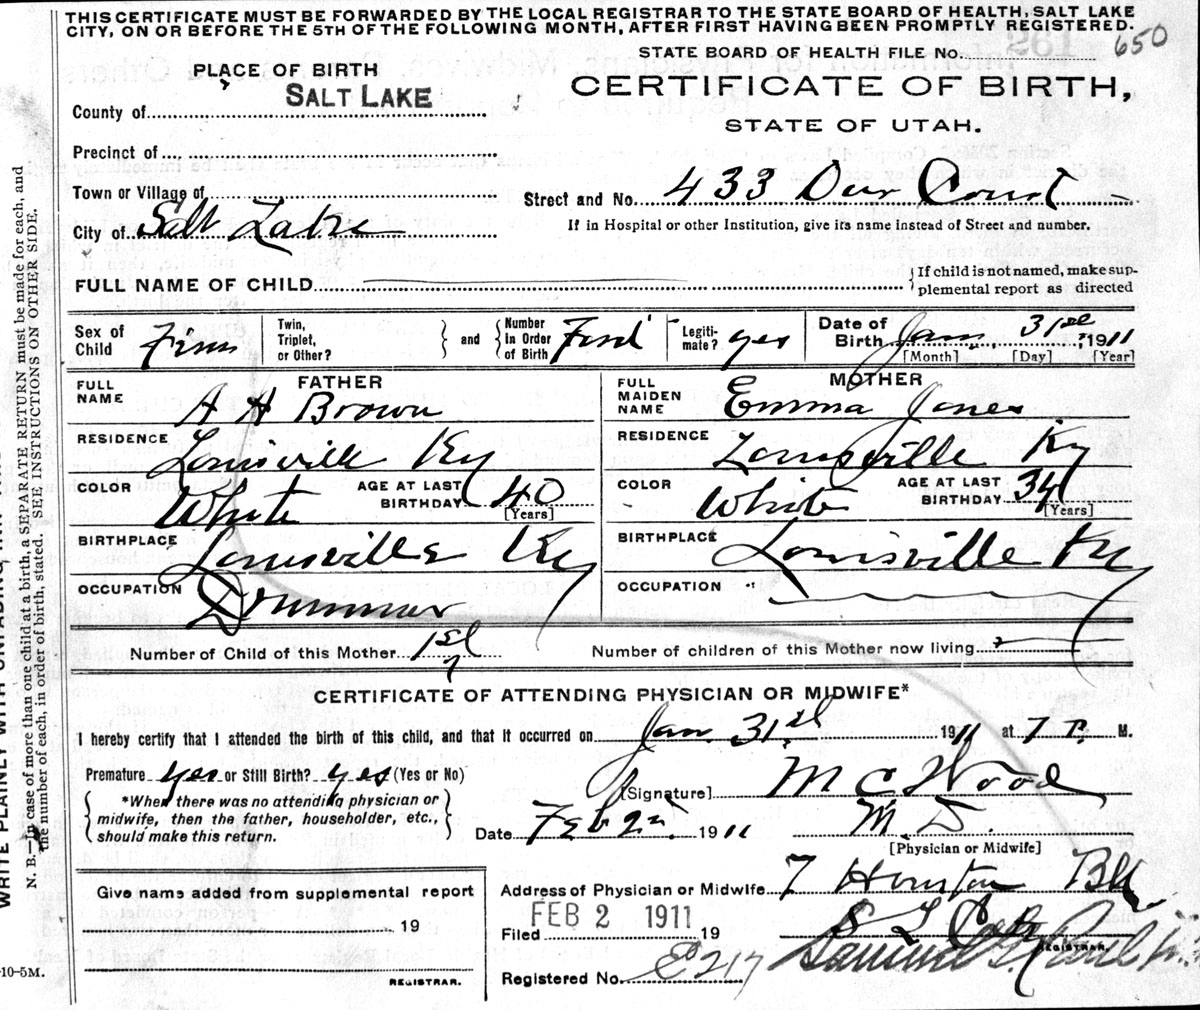 THIS CERTIFICATE MUST BE FORWARDED BY THE LOCAL REGISTRAR TO THE STATE BOARD OF HEALTH, SALT LAKE
CITY, ON OR BEFORE THE 5TH OF THE FOLLOWING MONTH, AFTER FIRST HAVING BEEN PROMPTLY REGISTERED.
STATE BOARD OF HEALTH FILE No. 650
PLACE OF BIRTH
CERTIFICATE OF BIRTH,
County of SALT LAKE
STATE OF UTAH.
Precinct of
Town or Village of
Street and No. 433 Court
City of Salt Lake
If in Hospital or other Institution, give its name instead of Street and number.
FULL NAME OF CHILD
If child is not named, make sup-
plemental report as directed
Sex of Child
Twin, Triplet, or Other?
and
Number In Order of Birth
Legiti-mate? yes
Date of Birth Jan. 31st 1911
[Month] [Day] [Year]
FATHER
FULL NAME A H Brown
RESIDENCE Louisville Ky
COLOR White
AGE AT LAST BIRTHDAY 40
[Years]
BIRTHPLACE Louisville Ky
OCCUPATION Drummer
MOTHER
FULL MAIDEN NAME Emma Jones
RESIDENCE Louisville Ky
COLOR White
AGE AT LAST BIRTHDAY 34
[Years]
BIRTHPLACE Louisville Ky
OCCUPATION
Number of Child of this Mother 1st
Number of children of this Mother now living
CERTIFICATE OF ATTENDING PHYSICIAN OR MIDWIFE*
I hereby certify that I attended the birth of this child, and that it occurred on Jan. 31st 1911 at 7 P. M.
Premature yes or Still Birth? yes (Yes or No)
*When there was no attending physician or
midwife, then the father, householder, etc.,
should make this return.
[Signature] M C Wood
Date Feb 2nd 1911
M. D.
[Physician or Midwife]
Give name added from supplemental report
19
REGISTRAR.
Address of Physician or Midwife 7 Houston Blk
S L City
Filed FEB 2 1911 19
REGISTRAR.
Registered No. 217
Samuel G. Paul
WRITE PLAINLY WITH UNFADING
N. B.—In case of more than one child at a birth, a SEPARATE RETURN must be made for each, and
the number of each, in order of birth, stated. SEE INSTRUCTIONS ON OTHER SIDE.
-10-5M.